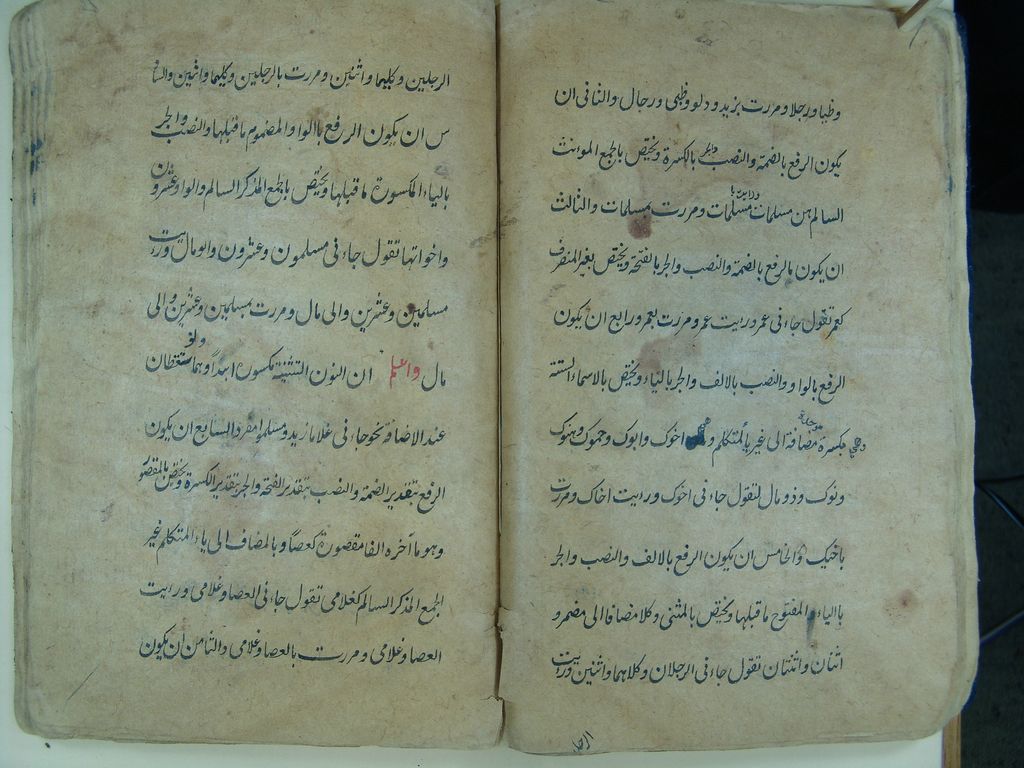 وظبيا ورجلا ومررت بزيد ودلو وظبي ورجال والثانى ان
يكون الرفع بالضمة والنصب والجر بالكسرة ويختص بالجمع المؤنث
السالم هن مسلمات ورايت مسلمات ومررت بمسلمات والثالث
ان يكون بالرفع بالضمة والنصب والجر بالفتحة ويختص بغير المنصرف
كعمر تقول جاءنى عمر ورايت عمر ومررت بعمر ورابع ان يكون
الرفع بالواو والنصب بالالف والجر بالياء ويختص بالاسماء الستة
مكبرة موحدة مضافة الى غير ياء المتكلم وهى اخوك وابوك وحموك وهنوك
وفوك وذو مال لتقول جاءنى اخوك ورايت اخاك ومررت
باخيك والخامس ان يكون الرفع بالالف والنصب والجر
بالياء المفتوح ماقبلها ويختص بالمثنى وكلا مضافا الى مضمر و
اثنان واثنتان تقول جاءنى الرجلان وكلاهما واثنين ورايت
الرجلين وكليهما واثنين ومررت بالرجلين وكليهما واثنين والسا
س ان يكون الرفع باالواو المضموم ماقبلها والنصب والجر
بالياء المكسورة ماقبلها ويختص بالجمع المذكر السالم والواو عشرون
واخواتها تقول جاءنى مسلمون وعشرون والو مال ورايت
مسلمين وعشرين والى مال ومررت بمسلمين وعشرين والى
مال واعلم ان النون التثنية مكسورة ابدا وهما تسقطان
عند الاضافة نحو جاءنى غلاما زيد ومسلموا مفرد السابع ان يكون
الرفع بتقدير الضمة والنصب بتقدير الفتحة والجر بتقدير الكسرة ويختص بالمقصور
وهو ما آخره الف مقصورة كعصا وبالمضاف الى ياء المتكلم غير
الجمع المذكر السالم كغلامى تقول جاءنى العصا وغلامى ورايت
العصا وغلامى ومررت بالعصا وغلامى والثامن ان يكون